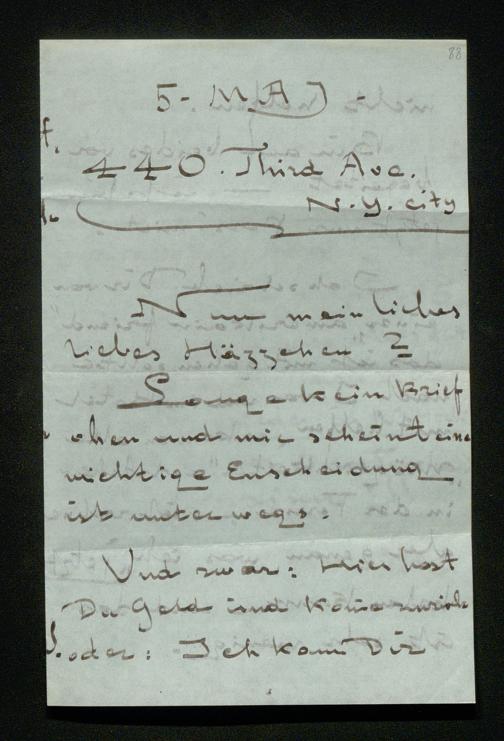 88
5 - MAJ -
440. Third Ave.
N.Y. city
Nun mein liebes
liebes Häzzchen ?
Lange kein Brief
chen und mir scheint eine
wichtige Enscheidung
ist unterwegs.
Und zwar: Hier hast
Du Geld und komme zurück
oder: Ich kann Dir